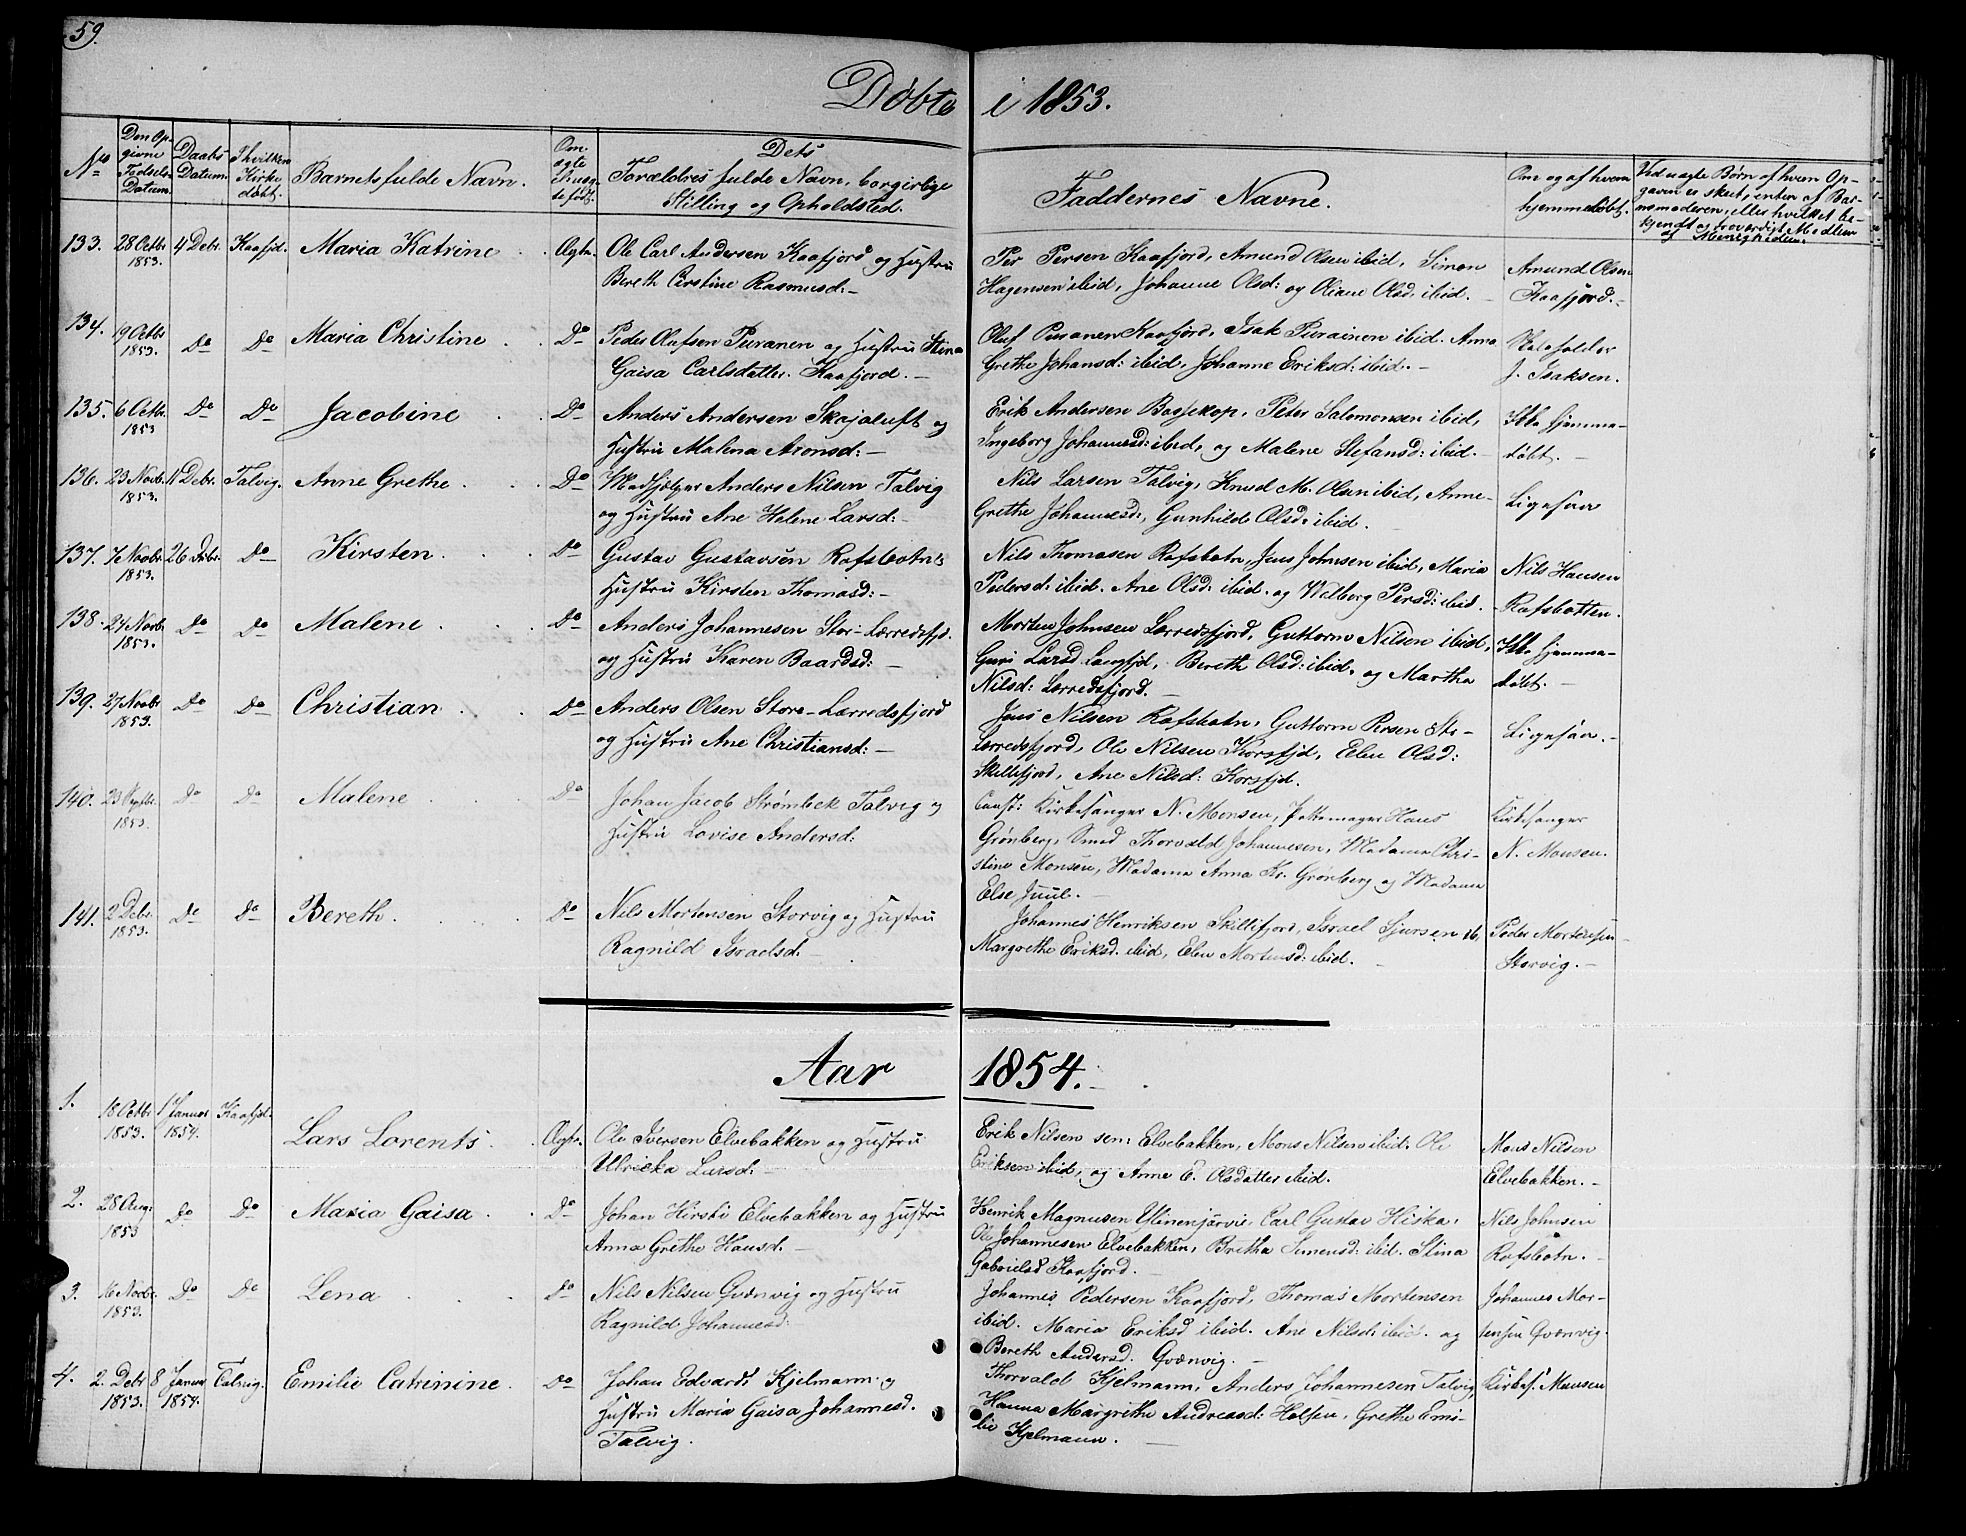 59.
Døbte i 1853.
No
Den Op-
givne
Fødsels
Datum.
Daabs
Datum.
I hvilken
Kirke
døbt.
Barnets fulde Navn.
Om
ægte
el. uæg-
te født.
Dets
Forældres fulde Navn, borgerlige
Stilling og Opholdsted.
Faddernes Navne.
Om og af hvem
hjemmedøbt.
Ved uægte Børn af hvem Op-
gaven er skeet, enten af Bar-
nemoderen, eller hvilket be-
kjendt og troværdigt Medlem
af Menigheden.
133. 28 Octbr 1853. 4 Debr. Kaafjd. Maria Katrine Ægte.
Ole Carl Andersen Kaafjord og Hustru
Bereth Cirstine Rasmusd:
Per Persen Kaafjord, Amund Olsen ibid, Simon
Hagensen ibid, Johanne Olsd: og Oliane Olsd. ibid.
Amund Olsen
Kaafjord.
134. 19 Octbr 1853. Do Do Maria Christine Do
Peder Olufsen Puranen og Hustru Stina
Gaisa Carlsdatter. Kaafjord.
Oluf Puranen Kaafjord, Isak Purainen ibid. Anna
Grethe Johansd: ibid, Johanne Eriksd: ibid.
J. Isaksen.
135. 6 Octbr. 1853 Do Do Jacobine Do
Anders Andersen Skajaluft og
Hustru Malena Aronsd:
Erik Andersen Bossekop, Peter Salomonsen ibid,
Ingeborg Johannesd: ibid, og Malene Stefansd: ibid.
Ikke hjemme-
døbt.
136. 23 Novb. 1853. 11 Debr. Talvig. Anne Grethe Do
Medhjelper Anders Nilsen Talvig
og Hustru Ane Helene Larsd:
Nils Larsen Talvig, Knud M. Olsen ibid, Anne-
Grethe Johannesd:, Gunhild Olsd: ibid.
Ligesaa
137. 16 Novbr. 1853. 26 Debr. Do Kirsten Do
Gustav Gustavsen Rafsbotn &
Hustru Kirsten Thomasd:
Nils Thomasen Rafsbotn, Jens Johnsen ibid, Maria
Pedersd: ibid. Ane Olsd: ibid. og Welborg Persd: ibid.
Nils Hansen
Rafsbotten.
138. 24 Novb. 1853. Do Do Malene Do
Anders Johannesen Stor-Lærredsfjd.
og Hustru Karen Baardsd:
Morten Johnsen Lærredsfjord, Guttorm Nilsen ibid,
Guri Larsd Langfjd, Bereth Olsd: ibid. og Martha
Nilsd: Lærredsfjord.
Ikke hjemme-
døbt.
139. 27 Novbr 1853. Do Do Christian Do
Anders Olsen Store-Lærredsfjord
og Hustru Ane Christiansd:
Jens Nilsen Rafsbotn, Guttorm Persen Sto-
Lærredsfjord, Ole Nilsen Korsfjd, Elen Olsd:
Skillefjord, Ane Nilsd: Korsfjd.
Ligesaa.
140. 23 Septbr. 1853. Do Do Malene Do
Johan Jacob Strømbek Talvig og
Hustru Lovise Andersd:
Const: Kirkesanger N. Monsen, Pottemager Hans
Grønberg, Smed Thorvald Johannesen, Madame Chri-
stine Monsen, Madame Anna Kr. Grønberg og Madame
Else Juul.
Kirkesanger
N. Monsen.
141. 2 Debr. 1853. Do Do Bereth. Do
Nils Mortensen Storvig og Hustru
Ragnild Israelsd.
Johannes Henriksen Skillefjord, Israel Sjursen ib,
Margrethe Eriksd. ibid, Elen Mortensd: ibid.
Peder Mortensen
Storvig.
Aar 1854.
1. 18 Octbr 1853. 1 Januar 1854. Kaafjd. Lars Lorents. Ægte.
Ole Iversen Elvebakken og Hustru
Ulricka Larsd:
Erik Nilsen sen: Elvebakken, Mons Nilsen ibid. Ole
Eriksen ibid, og Anne E. Olsdatter ibid.
Mons Nilsen
Elvebakken.
2. 28 Aug: 1853 Do Do Maria Gaisa. Do
Johan Hirski Elvebakken og Hustru
Anna Grethe Hansd.
Henrik Magnusen Ylinenjärvie, Carl Gustav Hiska,
Ole Johannesen Elvebakken, Bretha Simensd: ibid. Stina
Gabrielsd Kaafjord.
Nils Johnsen
Rafsbotn.
3. 16 Novbr. 1853. Do Do Lena Do
Nils Nilsen Qvænvig og Hustru
Ragnild Johannesd:
Johannes Pedersen Kaafjord, Thomas Mortensen
ibid. Maria Eriksd ibid. Ane Nilsd: ibid. og
Bereth Andersd. Qvænvig.
Johannes Mor-
tensen Qvænvig.
4. 2. Debr 1853. 8 Januar 1854. Talvig. Emilie Catrinine. Do
Johan Edvard Kjelmann og
Hustru Maria Gaisa Johannesd.
Talvig.
Thorvald Kjelmann, Anders Johannesen Talvig,
Hanna Margrethe Andreasd: Holsen, Grethe Emi-
lie Kjelmann.
Kirkes. Monsen